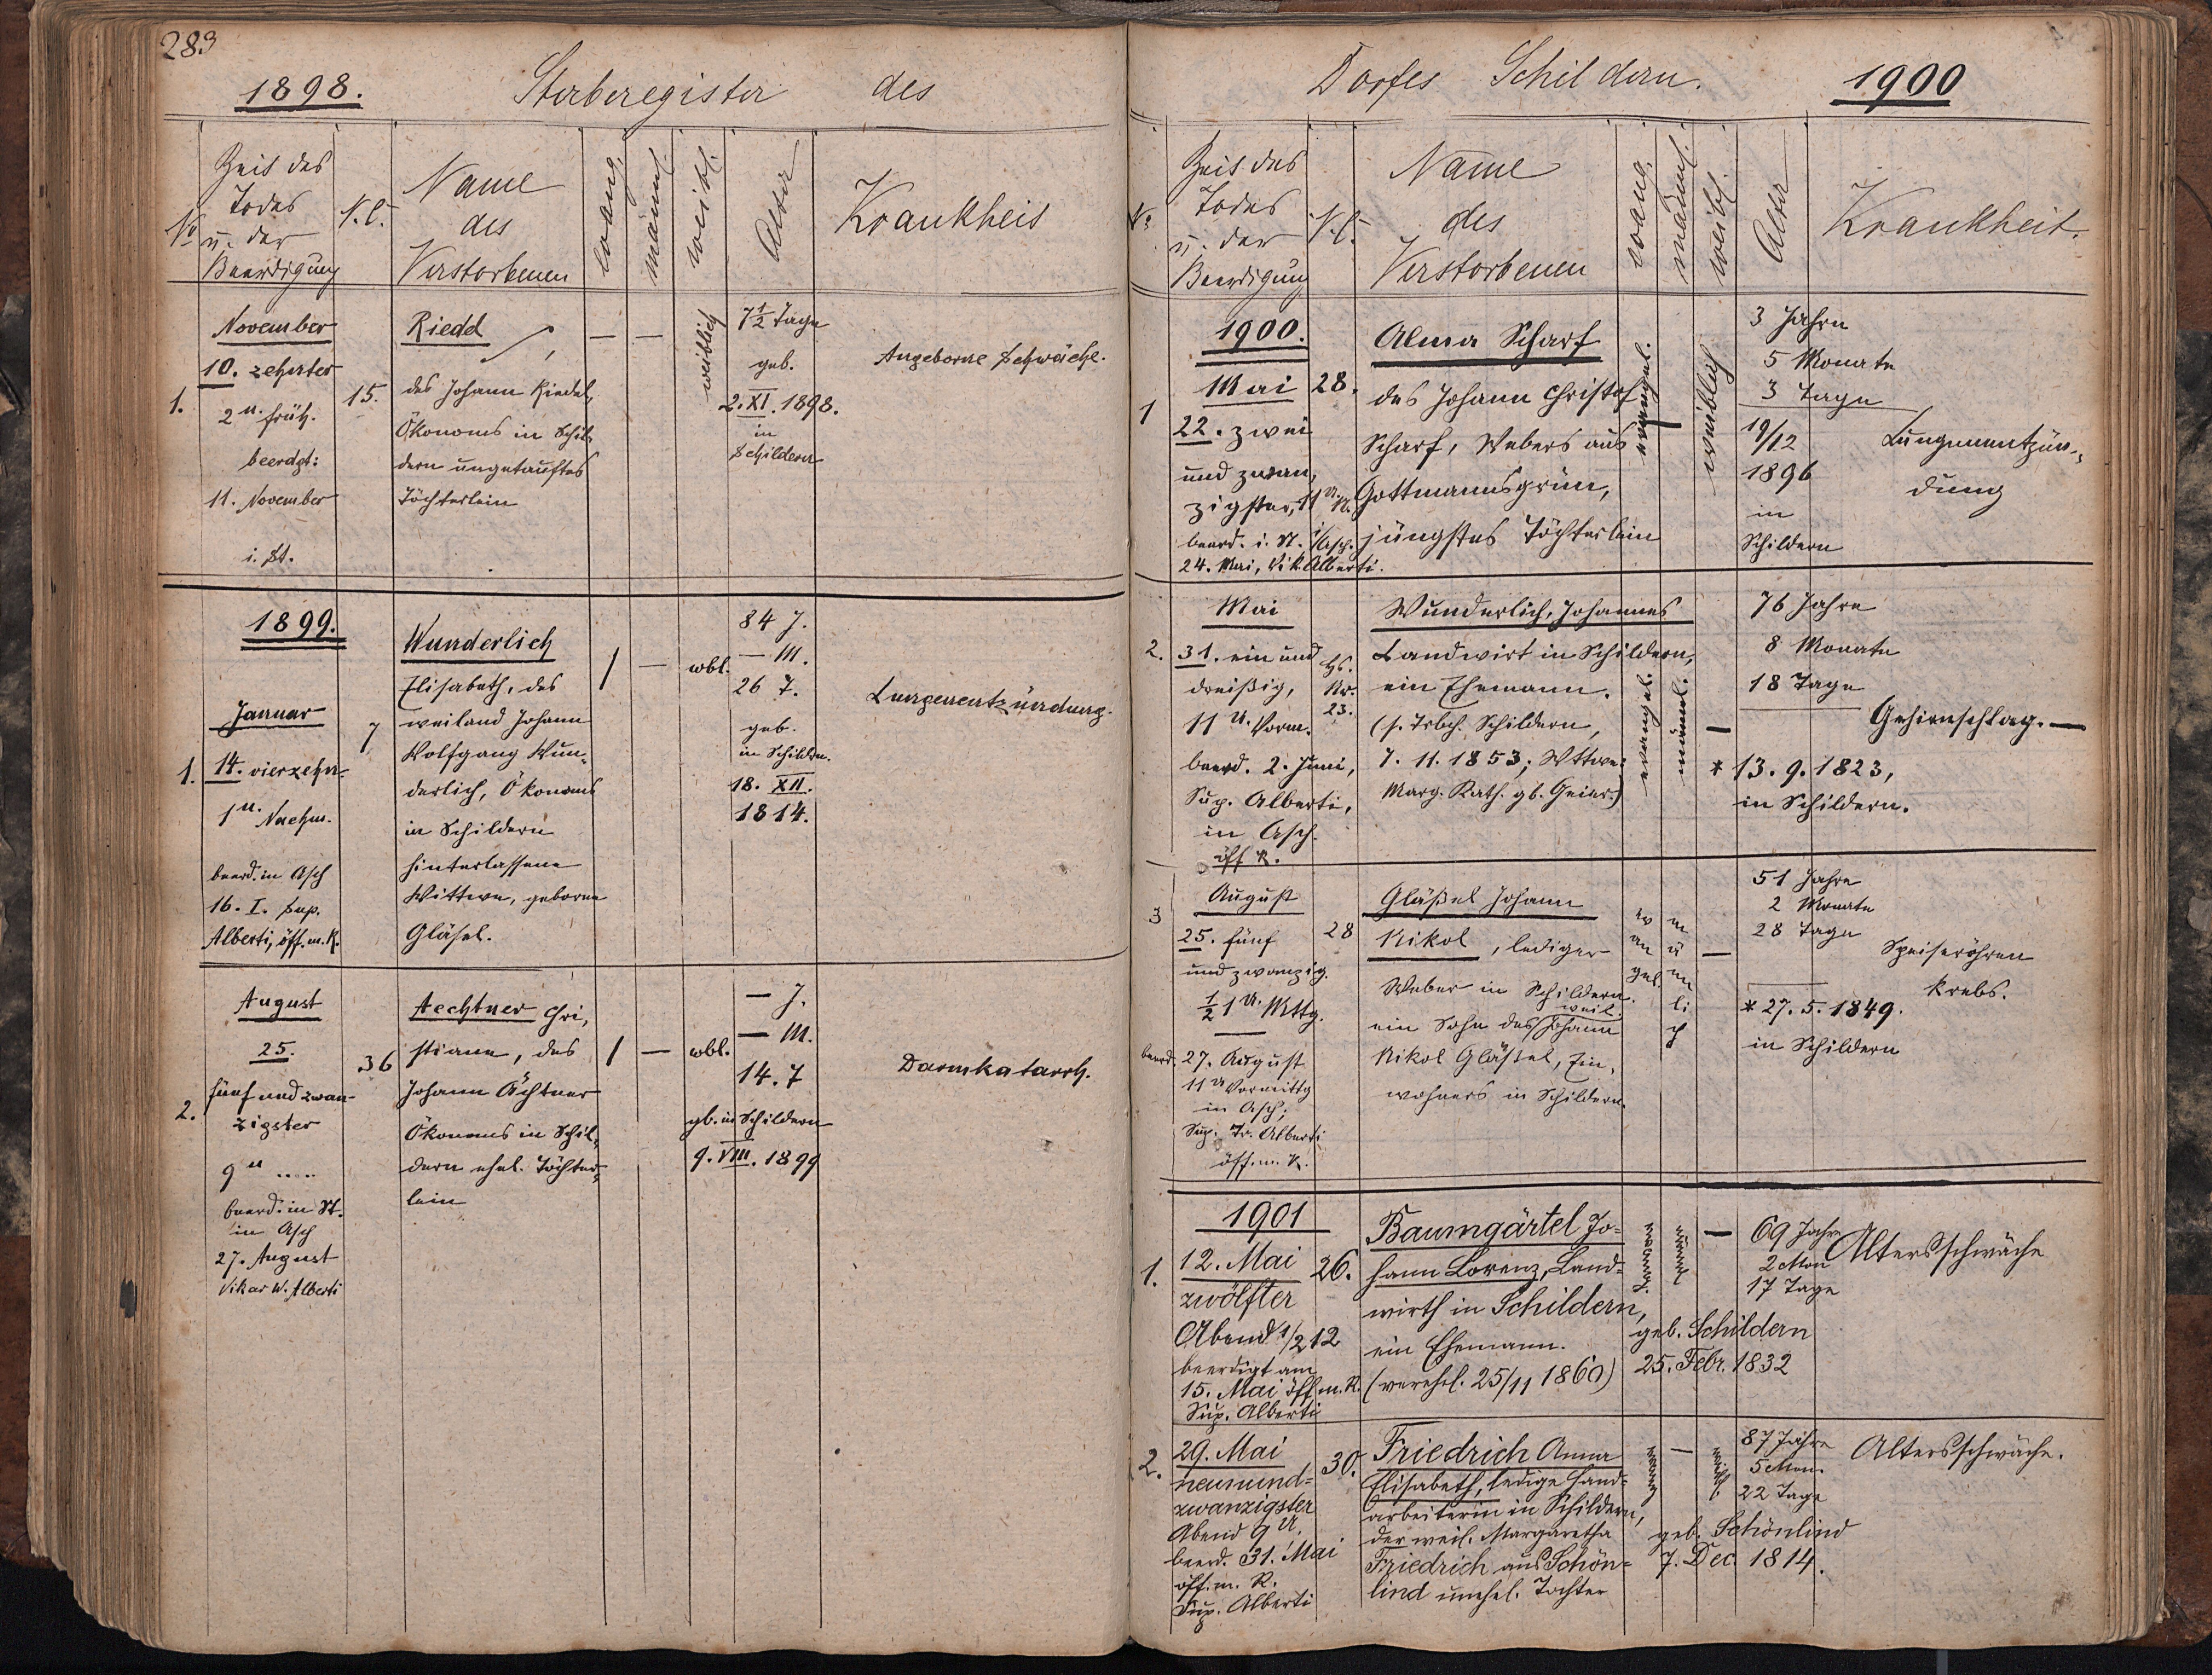 283
1898.
Sterberegister des
No
Zeit des
Todes
u. der
Beerdigung
N.C.
Name
des
Verstorbenen
evang.
männl.
weibl.
Alter
Krankheit
November
10. zehnter
2 U. früh.
beerdgt:
11. November
i. St.
1.
15.
Riedel
des Johann Riedel,
Ökonoms in Schil-
dern ungetauftes
Töchterlein
— —
weiblich
7 1/2 Tage
geb.
2. XI. 1898.
in
Schildern
Angeborne Schwäche.
1899.
Januar
1.
14. vierzehn-
1 U. Nachm.
beerd. in Asch
16. I. Sup.
Alberti, öff. m. R.
7
Wunderlich
Elisabeth, des
weiland Johann
Wolfgang Wun-
derlich, Ökonoms
in Schildern
hinterlassene
Wittwe, geborne
Gläsel.
/ — wbl.
84 J.
— M.
26 T.
geb.
in Schildern.
18. XII.
1814.
Lungenentzündung.
August
25.
2.
fünf und zwan-
zigster
9 U ....
beerd. in St.
in Asch
27. August
Vikar W. Alberti
36
Aechtner Chri-
stiane, des
Johann Ächtner
Ökonoms in Schil-
dern ehel. Töchter-
lein
/ — wbl.
— J.
— M.
14. T
gb. in Schildern
9. VIII. 1899
Darmkatarrh.
Dorfes Schildern.
1900
No
Zeit des
Todes
u. der
Beerdigung
N.C.
Name
des
Verstorbenen
evang.
männl.
weibl.
Alter
Krankheit.
1900.
Mai
1
22. zwei
und zwan-
zigster, 11 U. N.
beerd. i. St. i/Asch.
24. Mai, Vik. Alberti.
28.
Alma Scharf
des Johann Christof
Scharf, Webers aus
Gottmannsgrün,
jüngstes Töchterlein
evangel.
—
weiblich
3 Jahre
5 Monate
3 Tage
19/12
1896
in
Schildern
Lungenentzün-
dung
Mai
2.
31. ein und
dreißig,
11 U. Vorm.
beerd. 2. Juni,
Sup. Alberti,
in Asch.
öff R.
Hs.
Nr.
23.
Wunderlich, Johannes
Landwirt in Schildern,
ein Ehemann.
(s. Trbch. Schildern,
7. 11. 1853; Wttwe:
Marg. Kath. gb. Geier.)
evangel.
männl.
—
76 Jahre
8 Monate
18 Tage
* 13. 9. 1823,
in Schildern.
Gehirnschlag. —
August
3
25. fünf
und zwanzig.
1/2 1 U. Mttg.
beerd. 27. August
11 U Vormittg
in Asch;
Sup. Tr. Alberti
öff. m. R.
28
Gläßel Johann
Nikol, lediger
Weber in Schildern.
weil.
ein Sohn des Johann
Nikol Gläßel, Ein-
wohners in Schildern.
ev
an
gel.
m
ä
nn
li
ch
—
51 Jahre
2 Monate
28 Tage
* 27. 5. 1849.
in Schildern
Speiseröhren
krebs.
1901
1.
12. Mai
zwölfter
Abend 1/2 12
beerdigt am
15. Mai öff. m. R.
Sup. Alberti
26.
Baumgärtel Jo-
hann Lorenz, Land-
wirth in Schildern,
ein Ehemann.
(verehel. 25/11 1860)
evang.
männl.
—
69 Jahre
2 Mon
17 Tage
geb. Schildern
25. Febr. 1832
Altersschwäche
2.
29. Mai
neunund-
zwanzigster
Abend 9 U.
beerd. 31. Mai
öff. m. R.
Sup. Alberti
30.
Friedrich Anna
Elisabeth, ledige Hand-
arbeiterin in Schildern,
der weil. Margaretha
Friedrich aus Schön-
lind unehel. Tochter
evang
—
weibl
87 Jahre
5 Mon.
22 Tage
geb. Schönlind
7. Dec. 1814.
Altersschwäche.